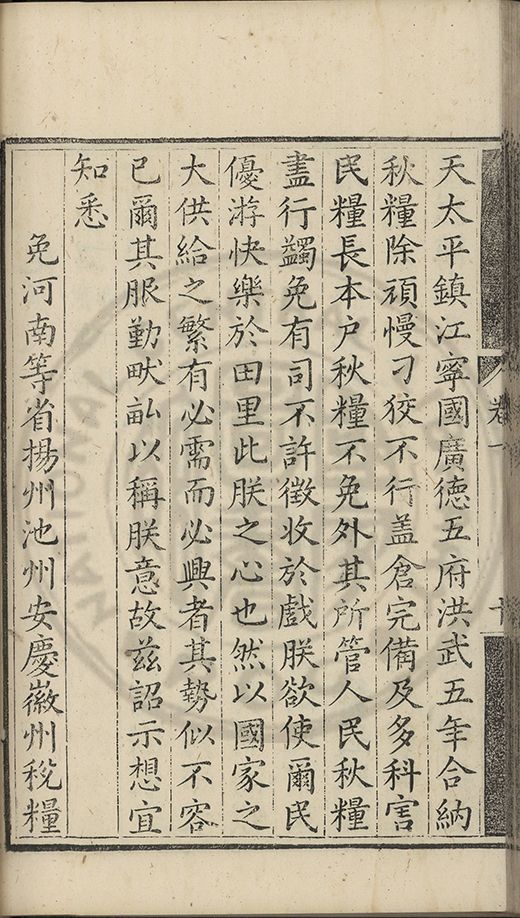 天太平鎮江寧國廣德五府洪武五年合納
秋糧除頑慢刁狡不行盖倉完備及多科害
民糧長本户秋糧不免外其所管人民秋糧
盡行蠲免有司不許徵收於戲朕欲使爾民
優游快樂於田里此朕之心也然以國家之
大供給之繁有必需而必興者其勢似不容
已爾其服勤畎畝以稱朕意故茲詔示想宜
知悉
免河南等省揚州池州安慶徽州稅糧
卷一
十